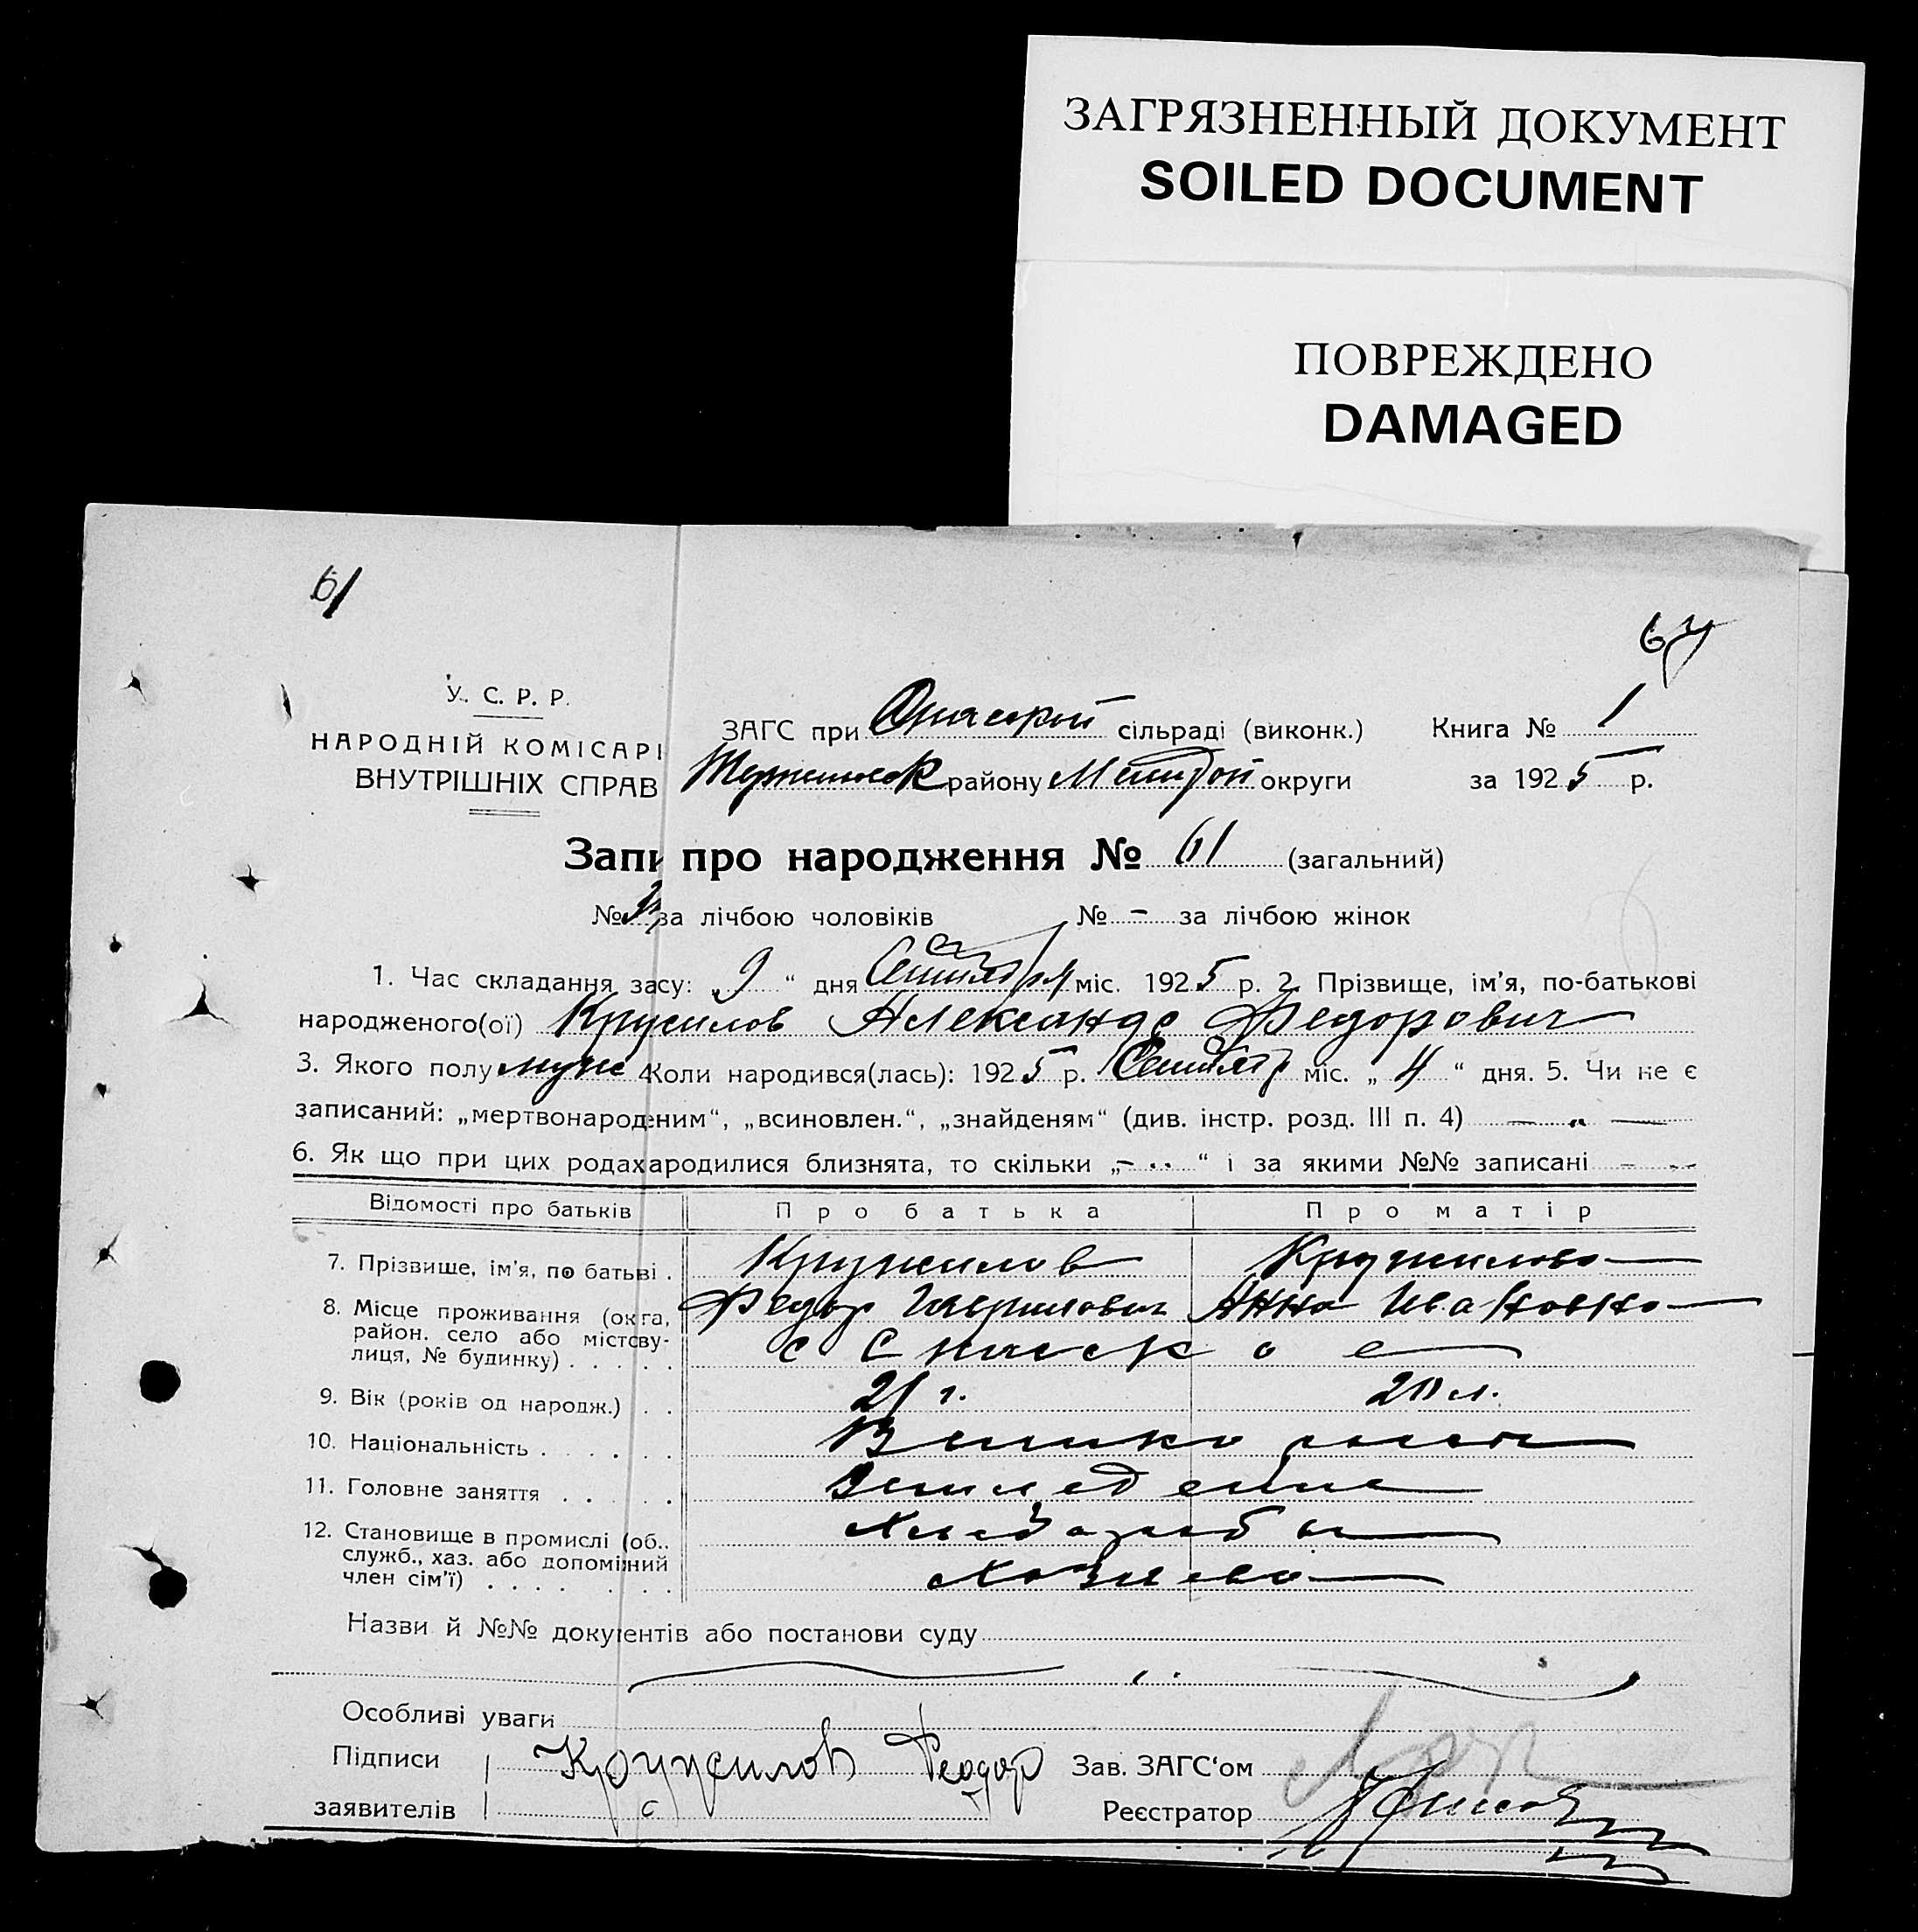 ЗАГРЯЗНЕННЫЙ ДОКУМЕНТ
SOILED DOCUMENT
ПОВРЕЖДЕНО
DAMAGED
61
64
У. С. Р. Р.
НАРОДНІЙ КОМІСАРІ
ВНУТРІШНІХ СПРАВ
ЗАГС при сільраді (виконк.) Книга № 1
району округи за 1925 р.
Запи про народження № 61 (загальний)
№ за лічбою чоловіків № - за лічбою жінок
1. Час складання засу: „ 9 “ дня Сентября міс. 1925 р. 2. Прізвище, ім'я, по-батькові
народженого(ої) Кружилов Александр Федорович
3. Якого полу муж 4 Коли народився(лась): 1925 р. Сентябр міс. „ 4 “ дня. 5. Чи не є
записаний: „мертвонароденим“, „всиновлен.“, „знайденям“ (див. інстр. розд. III п. 4) — „ —
6. Як що при цих родах ародилися близнята, то скільки „ - “ і за якими №№ записані -
Відомості про батьків Про батька Про матір
7. Прізвише, ім'я, по батьві . Кружилов Кружилова
8. Місце проживання (окга, Федор Гаврилович Анна Ивановна
район. село або містову-
лиця, № будинку) . . . . . с Спаское
9. Вік (років од народж.) . . 21 г. 20 л.
10. Національність . . . . . Велико россы
11. Головне заняття . . . . . Земледелие
12. Становище в промислі (об..
служб., хаз. або допоміжний
член сім'ї) . . . . . . . . Хозяева
Назви й №№ докуентів або постанови суду
Особливі уваги
Підписи Кружилов Феодор Зав. ЗАГС'ом
заявителів Реєстратор